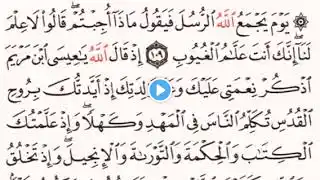 ۞ يَوْمَ يَجْمَعُ اللَّهُ الرُّسُلَ فَيَقُولُ مَاذَا أُجِبْتُمْ ۖ قَالُوا لَا عِلْمَ
لَنَا ۖ إِنَّكَ أَنتَ عَلَّامُ الْغُيُوبِ ١٠٩ إِذْ قَالَ اللَّهُ يَا عِيسَى ابْنَ مَرْيَمَ
اذْكُرْ نِعْمَتِي عَلَيْكَ وَالِدَتِكَ إِذْ أَيَّدتُّكَ بِرُوحِ
الْقُدُسِ تُكَلِّمُ النَّاسَ فِي الْمَهْدِ وَكَهْلًا ۖ وَإِذْ عَلَّمْتُكَ
الْكِتَابَ وَالْحِكْمَةَ وَالتَّوْرَاةَ وَالْإِنجِيلَ ۖ وَإِذْ تَخْلُقُ